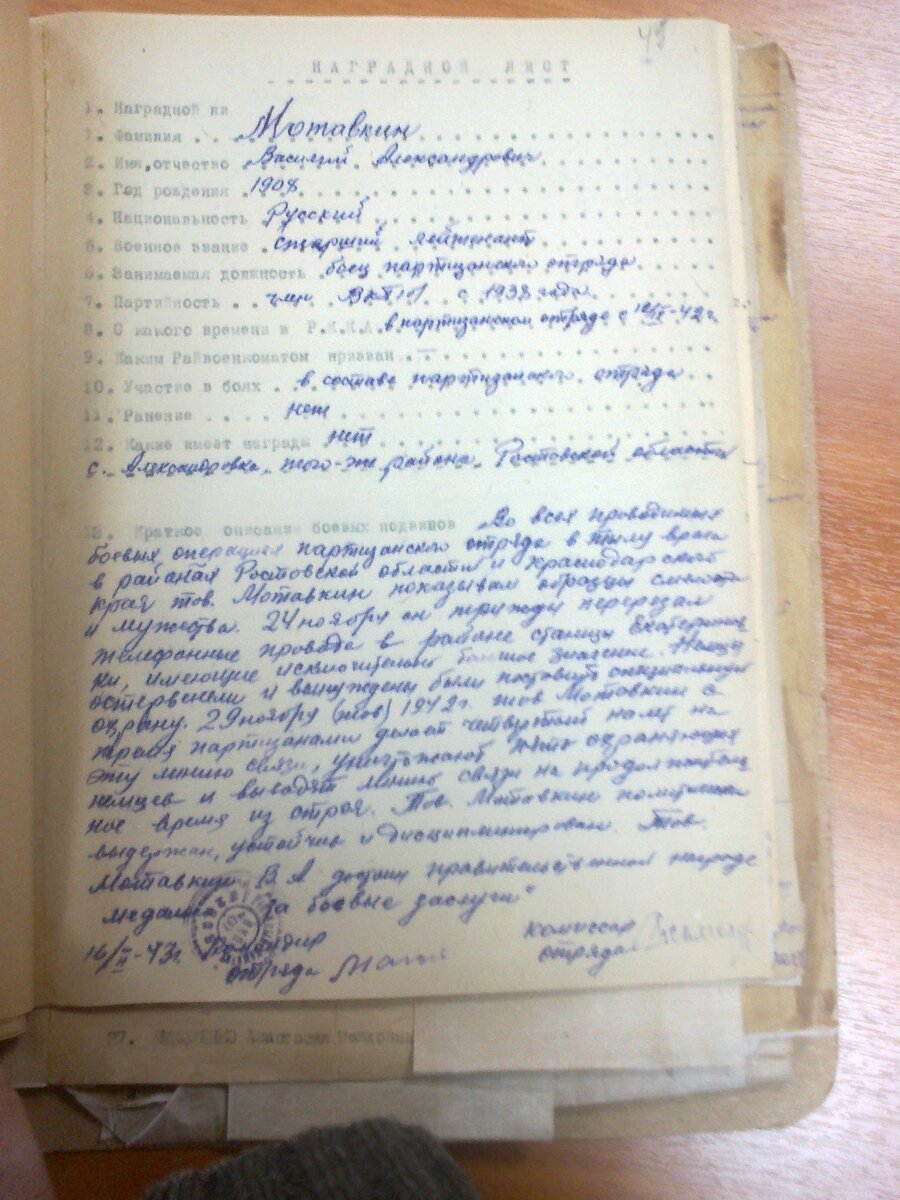 43
НАГРАДНОЙ ЛИСТ
1. Наградной ли
1. Фамилия . . Мотавкин
2. Имя, отчество Василий Александрович
3. Год рождения 1908
4. Национальность Русский
5. Военное звание старший лейтенант
6. Занимаемая должность боец партизанского отряда
7. Партийность . . член ВКП/б/ с 1938 года
8. С какого времени в Р.К.К.А. в партизанском отряде с -42 г.
9. Каким Райвоенкоматом призван . . —
10. Участие в боях . в составе партизанского отряда
11. Ранение . . . . нет
12. Какие имеет награды нет
с. Александровка, того-же района Ростовской области
13. Краткое описание боевых подвигов Во всех проводимых
боевых операциях партизанского отряда в тылу врага
в районах Ростовской области и Краснодарского
края тов. Мотавкин показывал образцы смелости
и мужества. 24 ноября он трижды перерезал
телефонные провода в районе станицы Екатеринов
ки, имеющие исключительно большое значение. Немцы
остервенели и вынуждены были поставить специальную
охрану. 29 ноября 1942 г. тов Мотавкин с
тремя партизанами делает четвертый налет на
эту линию связи, уничтожают пять охраняющих
немцев и выводят линию связи на продолжитель
ное время из строя. Тов. Мотавкин
выдержан, устойчив и дисциплинирован. Тов.
Мотавкин В А достоин правительственной награде
медали "За боевые заслуги"
16/II-43 г. Командир
отряда
комиссар
отряда
Анастасия